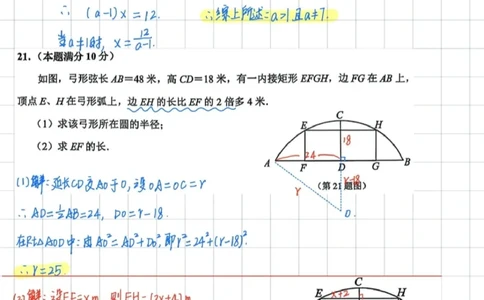 ∴ (a-1)x = 12.
∴综上所述:a>1且a≠7.
当a≠1时, x = 12/a-1.
21.(本题满分 10 分)
如图,弓形弦长 AB=48 米,高 CD=18 米,有一内接矩形 EFGH,边 FG 在 AB 上,
顶点 E、H 在弓形弧上,边 EH 的长比 EF 的 2 倍多 4 米.
(1)求该弓形所在圆的半径;
(2)求 EF 的长.
C
E
H
18
24
A
F
D
G
B
r
r-18
(第 21 题图)
O
(1)解:延长CD交AO于O,设OA=OC=r
∴ AD=½AB=24, DO=r-18.
在Rt△AOD中:由AO²=AD²+DO²,即r²=24²+(r-18)²
∴ r=25.
(2)解:设EF=x m, 则EH=(2x+4)m
C
E
x+2
H